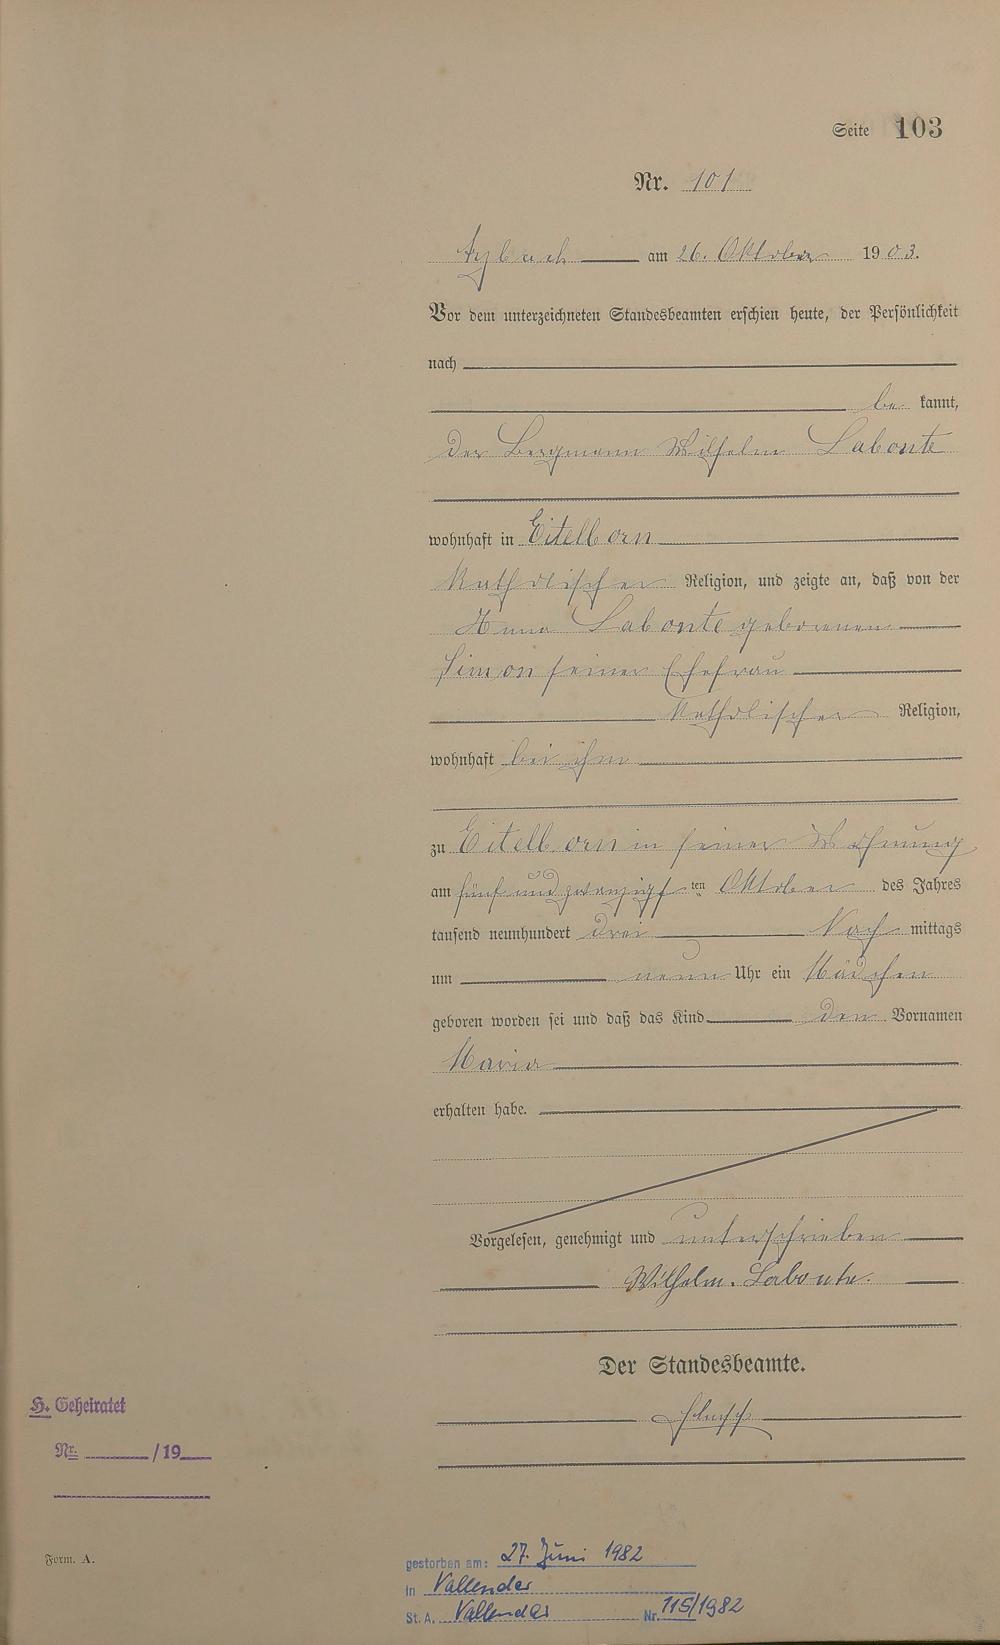 Seite 103
Nr. 101
Arzbach am 26. Oktober 1903.
Vor dem unterzeichneten Standesbeamten erschien heute, der Persönlichkeit
nach
be kannt,
der Bergmann Wilhelm Labonte
wohnhaft in Eitelborn
katholischer Religion, und zeigte an, daß von der
Anna Labonte geborenen
Simon seiner Ehefrau
katholischer Religion,
wohnhaft bei ihm
zu Eitelborn in seiner Wohnung
am fünf und zwanzigsten Oktober des Jahres
tausend neunhundert drei Nach mittags
um neun Uhr ein Mädchen
geboren worden sei und daß das Kind den Vornamen
Maria
erhalten habe.
Vorgelesen, genehmigt und unterschrieben
Wilhelm. Labonte.
Der Standesbeamte.
H. Geheiratet
Nr. /19
Form. A.
gestorben am: 27. Juni 1982
in Vallendar
St. A. Vallendar Nr. 115/1982